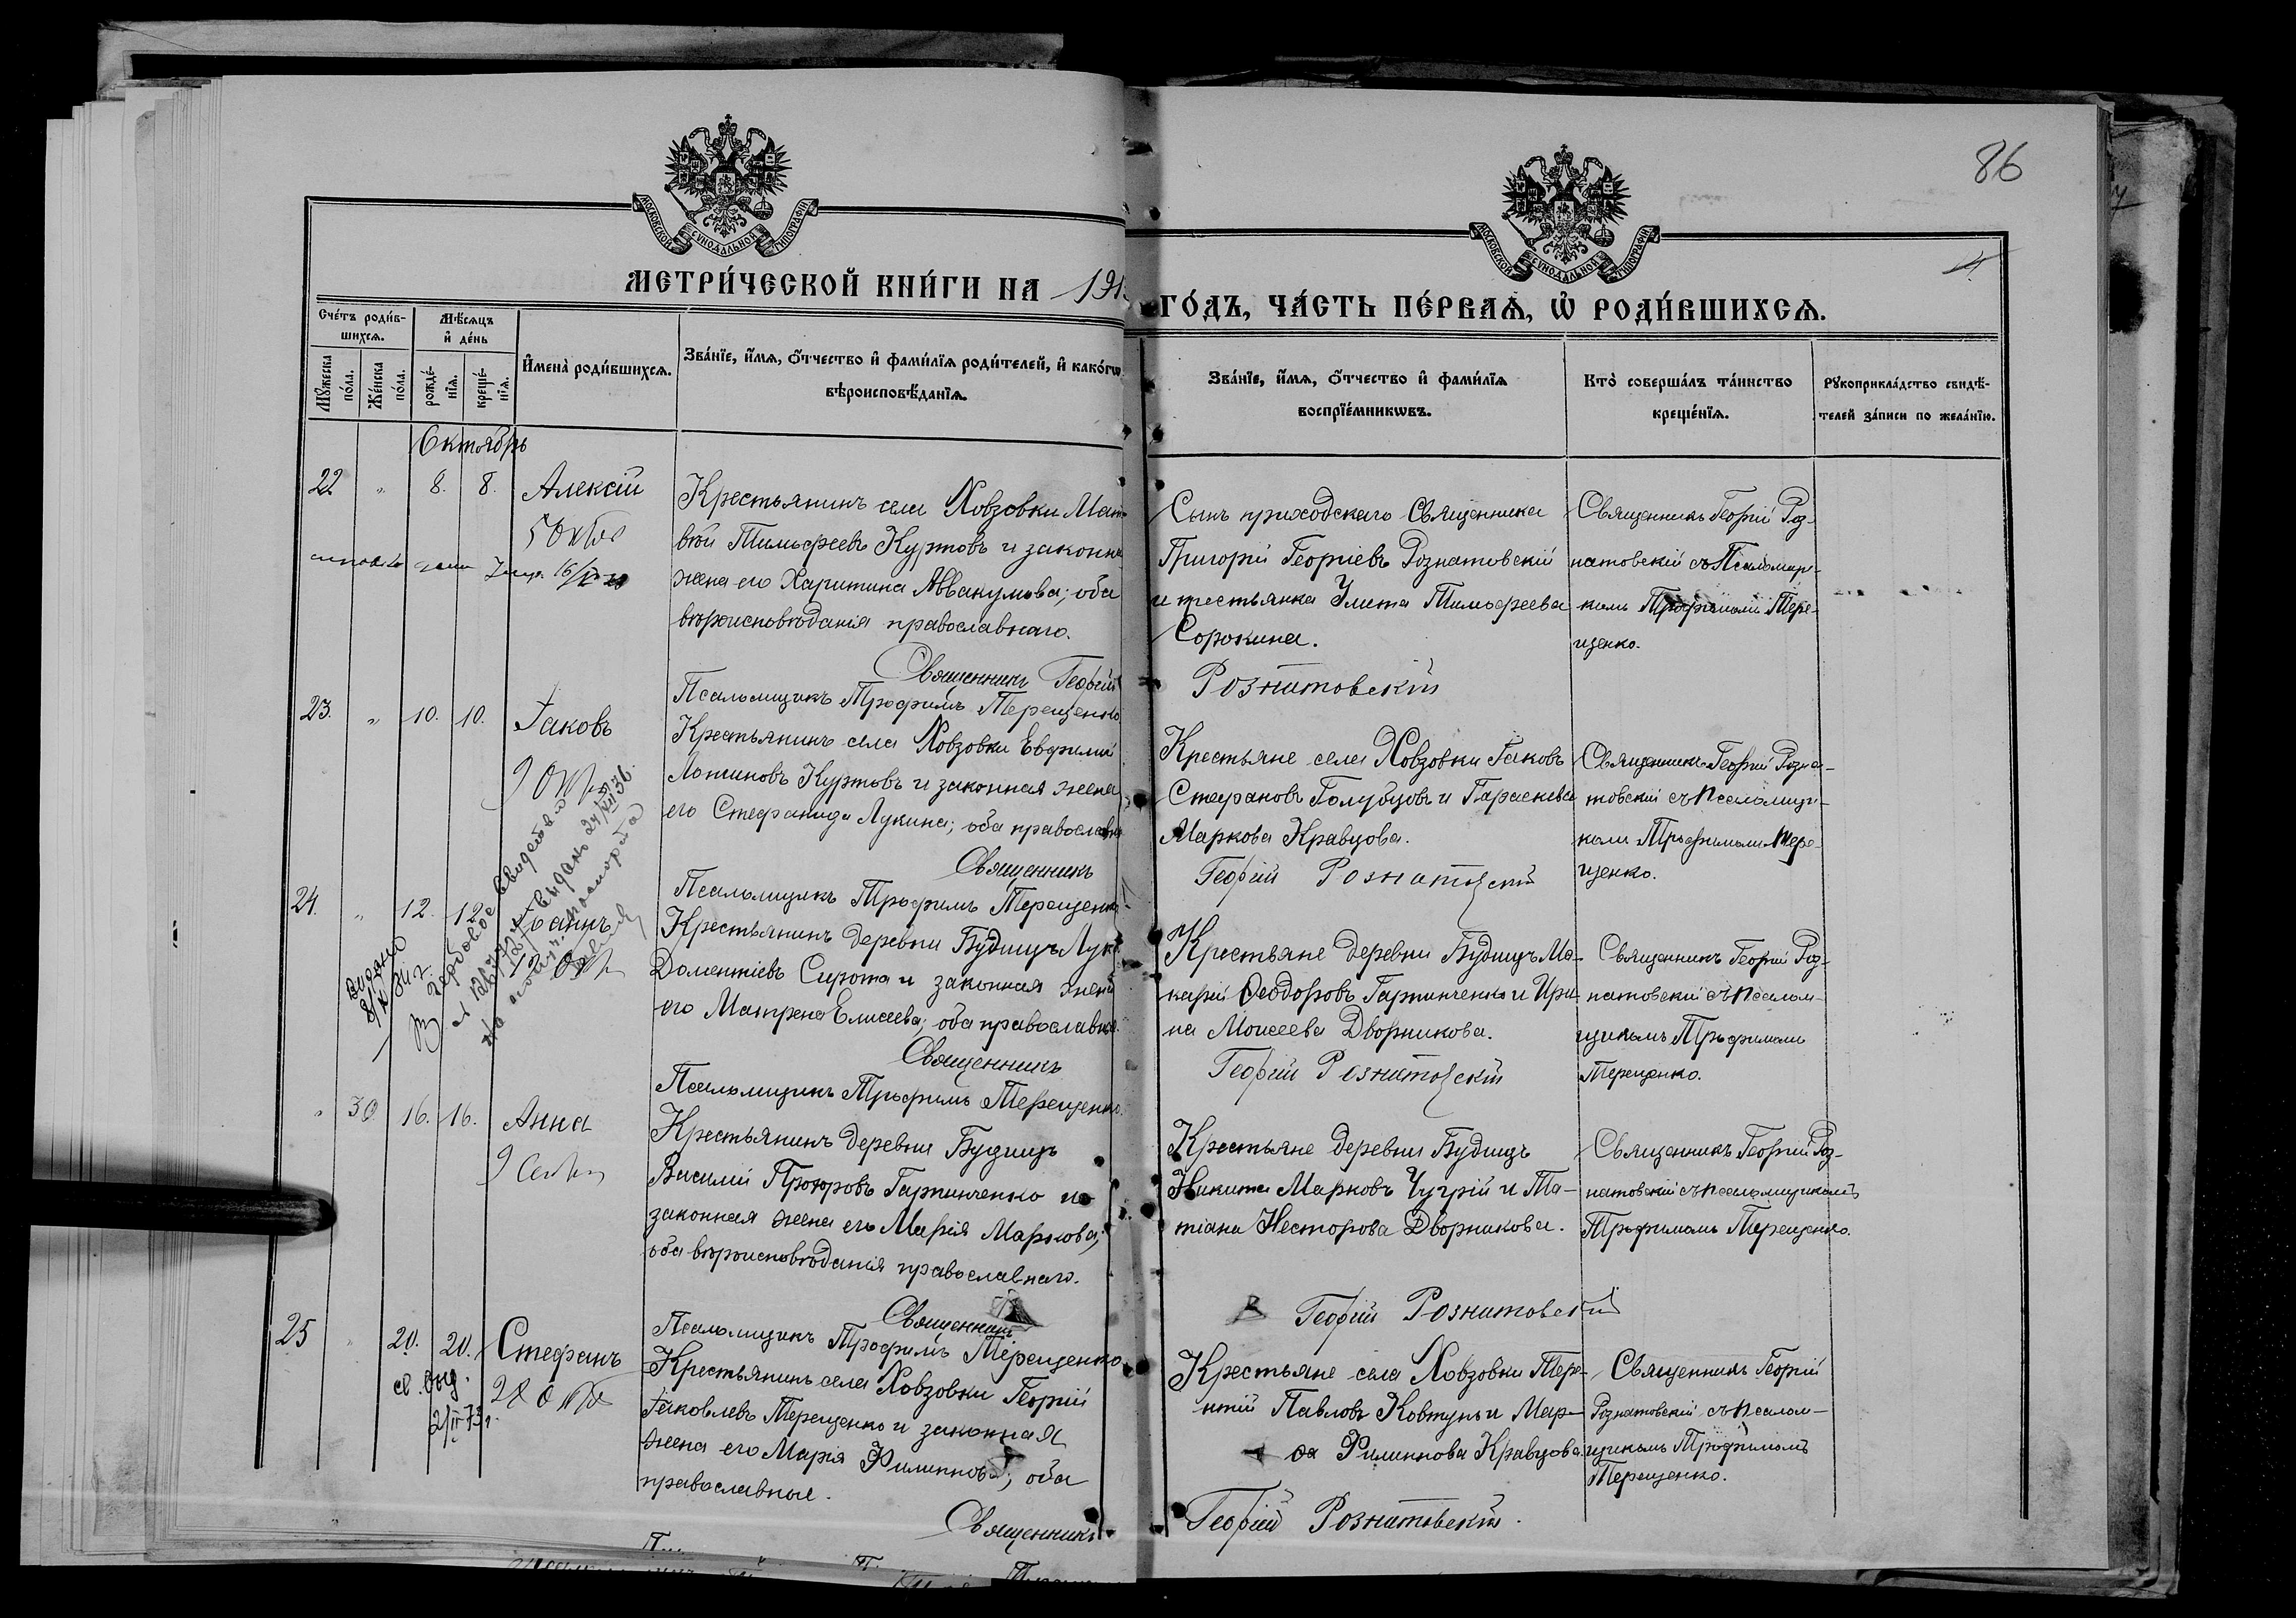 86
МОСКОВСКОЙ СѴНОДАЛЬНОЙ ТИПОГРАФІИ
МОСКОВСКОЙ СѴНОДАЛЬНОЙ ТИПОГРАФІИ
МЕТРИ́ЧЕСКОЙ КНИ́ГИ НА 191
ГО́ДЪ, ЧА́СТЬ ПЕ́РВАѦ, Ѡ҆ РОДИ́ВШИХСѦ.
Сче́тъ роди́в-
шихсѧ.
Мꙋ́жеска по́ла.
Же́нска по́ла.
Мѣ́сѧцъ
и҆ де́нь
рожде́-
нїѧ.
креще́-
нїѧ.
И҆мена̀ роди́вшихсѧ.
Зва́нїе, и҆́мѧ, ѻ҆́тчество и҆ фами́лїѧ роди́телей, и҆ како́гѡ
вѣроисповѣ́данїѧ.
Зва́нїе, и҆́мѧ, ѻ҆́тчество и҆ фами́лїѧ
воспрїе́мникѡвъ.
Кто̀ соверша́лъ та́инство
креще́нїѧ.
Рꙋкоприкла́дство свидѣ́-
телей за́писи по жела́нїю.
Октябрь
22 " 8. 8. Алексій
5 Октбр
16/
Крестьянинъ села Ховзовки Мат-
вѣй Тимофеевъ Куртовъ и законн
жена его Харитина Аввакумова; оба
вѣроисповѣданія православнаго.
Священникъ Георгій
Псаломщикъ Трофимъ Терещенко
Сынъ приходскаго Священника
Григорій Георгіевъ Рознатовскій
и крестьянка Улита Тимофеева
Сорокина.
Рознатовскій
Священникъ Георгій Роз-
натовскій съ Псаломщи-
комъ Трофимомъ Тере-
щенко.
23. " 10. 10. Іаковъ
9 Окт
Крестьянинъ села Ховзовки Евфимій
Логиновъ Куртовъ и законная жена
его Стефанида Лукина; оба православн
Священникъ
Псаломщикъ Трофимъ Терещенко
Крестьяне села Ховзовки Іаковъ
Стефановъ Голубцовъ и Параскева
Маркова Кравцова.
Георгій Рознатовскій
Священникъ Георгій Розна-
товскій съ псаломщи-
комъ Трофимомъ Тере-
щенко.
24. " 12. 12. Іоаннъ
12 Окт
Выдано
8/X 34 г.
гербовое свидетство
выдано 24/VII 36.
паспорта
Крестьянинъ деревни Будищъ Лука
Доментіевъ Сирота и законная жена
его Матрена Елисеева; оба православн
Священникъ
Псаломщикъ Трофимъ Терещенко.
Крестьяне деревни Будищъ Ма-
карій Ѳеодоровъ Гапинченко и Ири-
на Моисеева Дворникова.
Георгій Рознатовскій
Священникъ Георгій Роз-
натовскій съ псалом-
щикомъ Трофимомъ
Терещенко.
" 30 16. 16. Анна
9 Сент
Крестьянинъ деревни Будищъ
Василій Прохоровъ Гапинченко и
законная жена его Марія Маркова;
оба вѣроисповѣданія православнаго.
Священникъ
Псаломщикъ Трофимъ Терещенко
Крестьяне деревни Будищъ
Никита Марковъ Чугрій и Та-
тіана Несторова Дворникова.
Георгій Рознатовскій
Священникъ Георгій Роз-
натовскій съ псаломщикомъ
Трофимомъ Терещенко.
25 " 20. 20. Стефанъ
28 Октб
св. выд.
2/II 73 г.
Крестьянинъ села Ховзовки Георгій
Іаковлевъ Терещенко и законная
жена его Марія Филиппова; оба
православные.
Священникъ
Крестьяне села Ховзовки Тере-
нтій Павловъ Ковтунъ и Мар-
ѳа Филиппова Кравцова.
Георгій Рознатовскій.
Священникъ Георгій
Рознатовскій съ псалом-
щикомъ Трофимомъ
Терещенко.